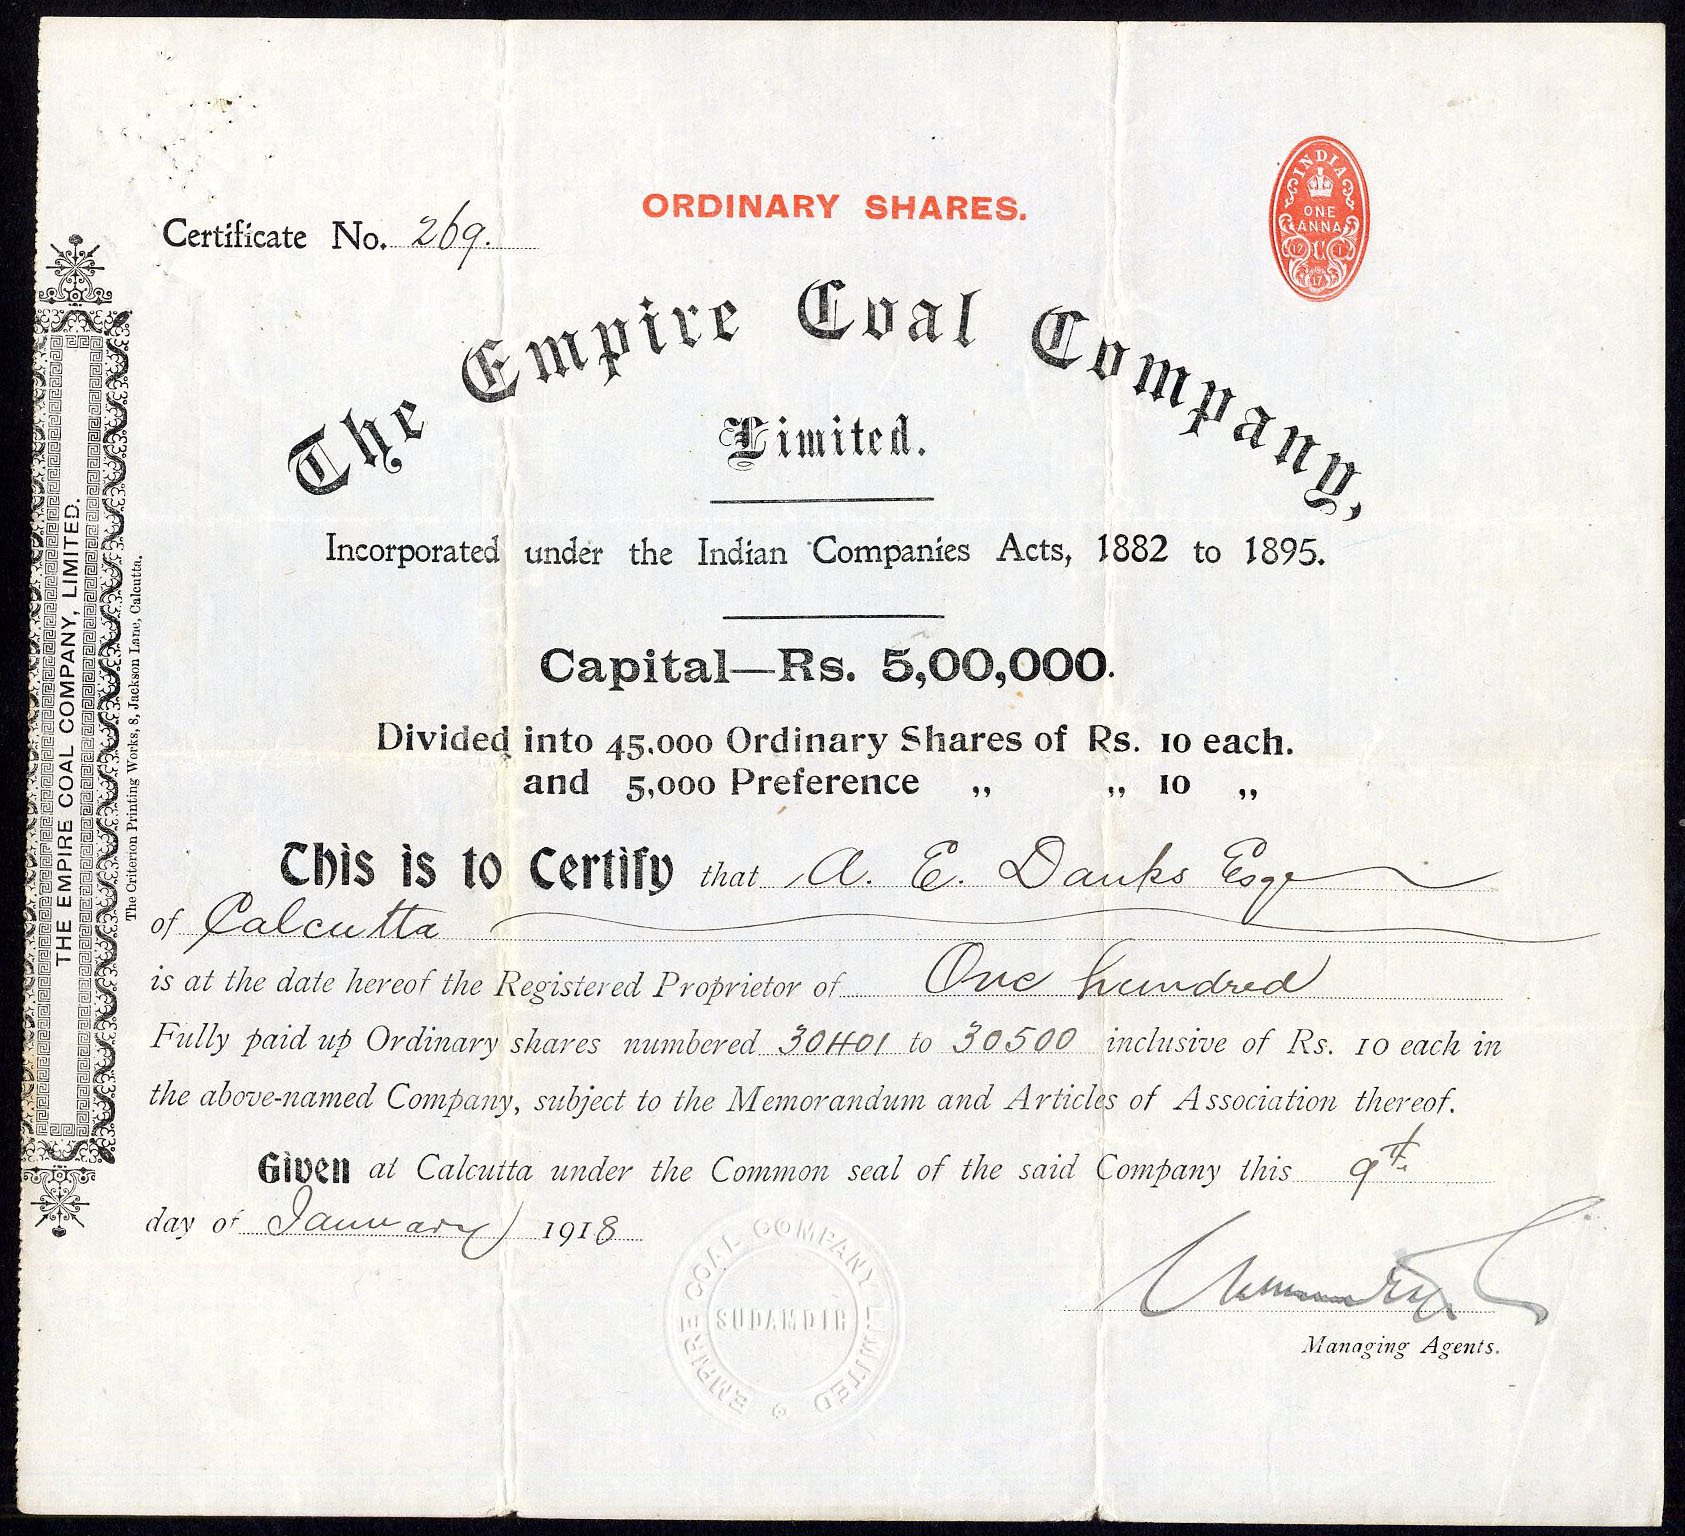 ORDINARY SHARES.
INDIA
ONE
ANNA
Certificate No. 269.
The Empire Coal Company,
Limited.
Incorporated under the Indian Companies Acts, 1882 to 1895.
Capital—Rs. 5,00,000.
Divided into 45,000 Ordinary Shares of Rs. 10 each.
and 5,000 Preference „ „ 10 „
This is to Certify that A. E. Danks Esqe
of Calcutta
is at the date hereof the Registered Proprietor of One hundred
Fully paid up Ordinary shares numbered 30401 to 30500 inclusive of Rs. 10 each in
the above-named Company, subject to the Memorandum and Articles of Association thereof.
Given at Calcutta under the Common seal of the said Company this 9th.
day of January 1918
EMPIRE COAL COMPANY LIMITED
SUDAMDIH
Managing Agents.
THE EMPIRE COAL COMPANY, LIMITED.
The Criterion Printing Works, 8, Jackson Lane, Calcutta.